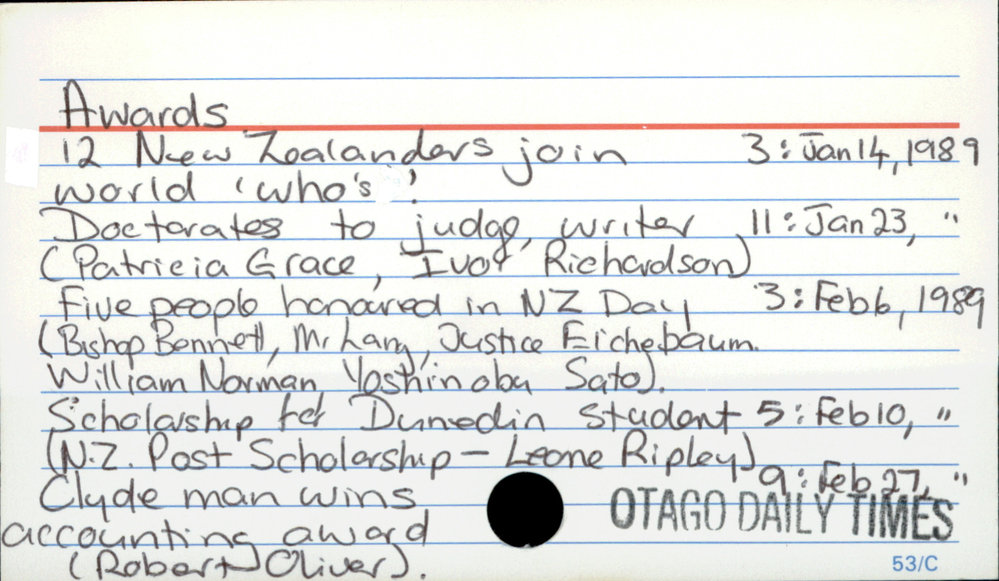 Awards
12 New Zealanders join 3: Jan 14, 1989
world 'who's'
Doctorates to judge, writer 11: Jan 23, "
(Patricia Grace, Ivor Richardson)
Five people honoured in NZ Day 3: Feb 6, 1989
(Bishop Bennett, Mr Lang, Justice Eichelbaum.
William Norman, Yoshinobu Sato).
Scholarship for Dunedin student 5: Feb 10, "
(N.Z. Post Scholarship - Leone Ripley)
Clyde man wins 9: Feb 27, "
accounting award
(Robert Oliver).
OTAGO DAILY TIMES
53/C